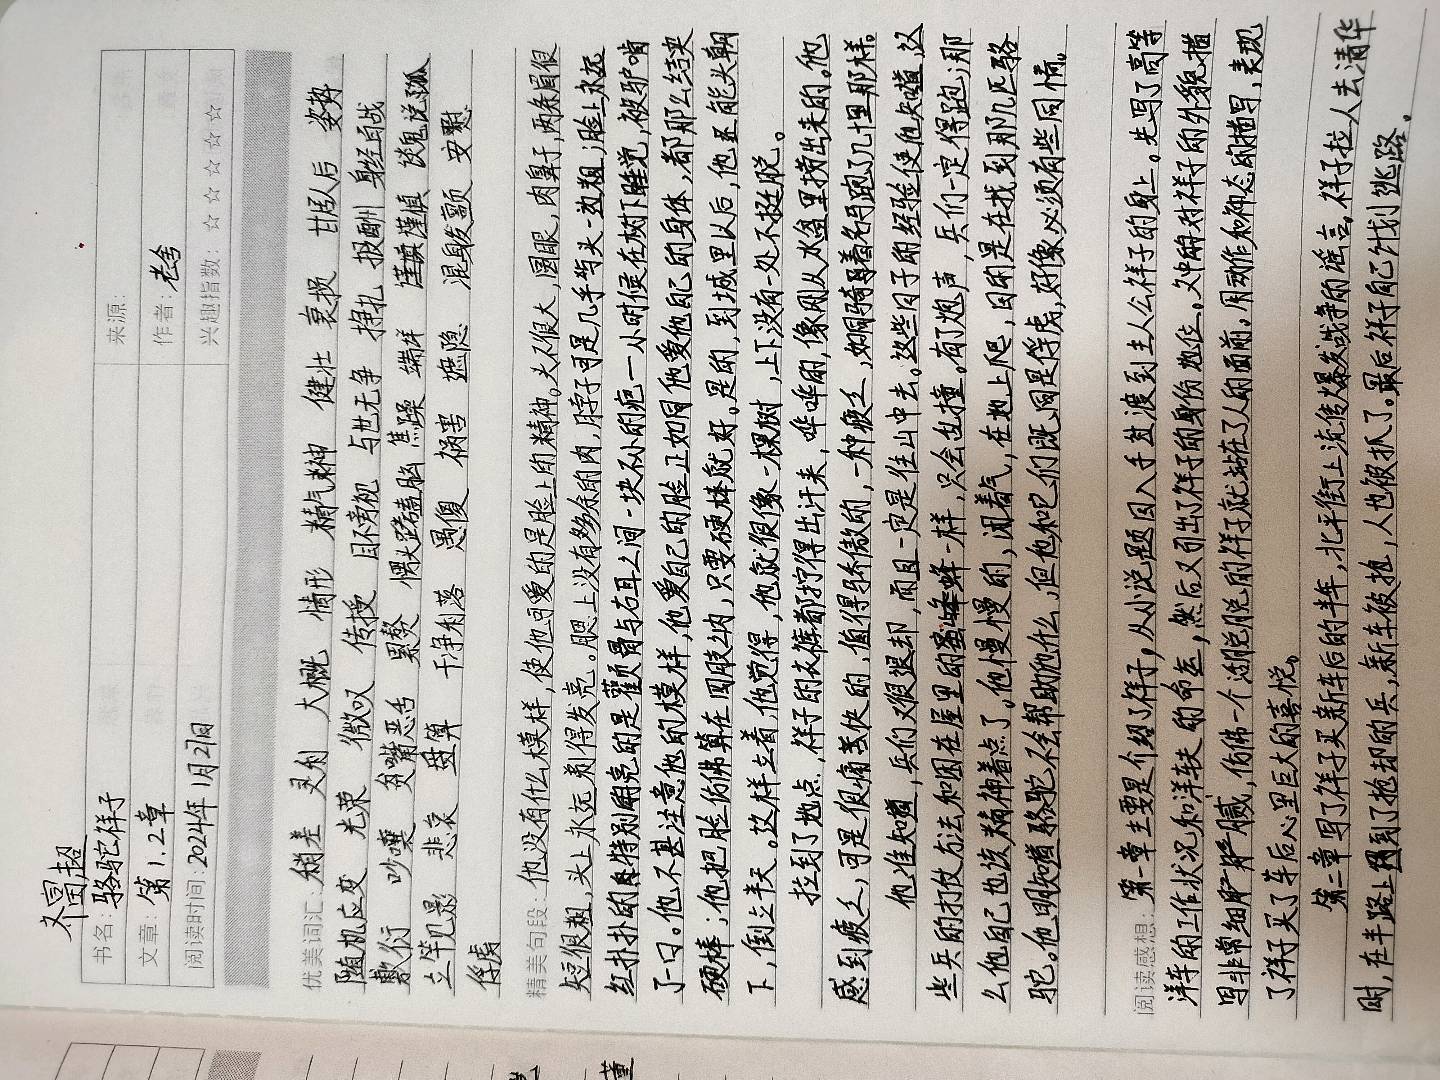 书名：骆驼祥子 来源：
文章：第1.2章 作者：老舍
阅读时间：2024年1月21日 兴趣指数：☆☆☆☆☆
优美词汇：稍差 灵利 大概 情形 精气神 健壮 衰损 甘居人后 姿势
随机应变 光荣 微叹 传授 目不旁视 与世无争 挣扎 报酬 身经百战
敷衍 吵嚷 贫嘴恶舌 累赘 愣头磕脑 焦躁 端详 谨慎 谈鬼说狐
立竿见影 悲哀 盘算 干净利落 愚傻 祸害 隐隐 混身发颤 安慰
俘虏
精美句段：他没有什么模样，使他可爱的是脸上的精神。头不很大，圆眼，肉鼻子，两条眉很
短很粗，头上永远剃得发亮。腮上没有多余的肉，脖子可是几乎与头一边粗；脸上永远
红扑扑的特别亮的是颧骨与右耳之间一块不小的疤一小时候在树下睡觉，被驴啃
了一口。他不甚注意他的模样，他爱自己的脸正如同他爱他自己的身体，都那么结实
硬棒；他把脸仿佛算在四肢之内，只要硬棒就好。是的，到城里以后，他还能头朝
下，倒立半天。这样立着，他觉得，他就很像一棵树，上下没有一处不挺脱。
拉到了地点，祥子的衣裤都拧得出汗来，哗哗的，像刚从水盆里捞出来的。他
感到疲乏，可是很痛快的，值得骄傲的，一种疲乏，如同骑着名马跑了几十里那样。
他准知道，兵们又得退却，而且一定是往山中去。这些日子的经验使他知道，这
些兵的打仗方法和困在屋里的蜜蜂一样，只会乱撞。有了炮声，兵们一定得跑；那
么他自己也该精神着点了。他慢慢的，闭着气，在地上爬，目的是在找到那几匹骆
驼。他明知道骆驼不会帮助他什么，但他和它们既同是俘虏，好像必须有些同情。
阅读感想：第一章主要是介绍了祥子，从小说题目入手过渡到主人公祥子的身上。先写了高等
洋车的工作状况和洋车夫的命运，然后又引出了祥子的身份地位。文中的对祥子的外貌描
写非常细腻，仿佛一个活脱脱的祥子就站在了人的面前。用动作和神态的描写，表现
了祥子买了车后心里巨大的喜悦。
第二章写了祥子买新车后的半年，北平街上流传爆发战争的谣言。祥子拉人去清华
时，在半路上遇到了抢劫的兵，新车被抢，人也被抓了。最后祥子自己计划逃路。